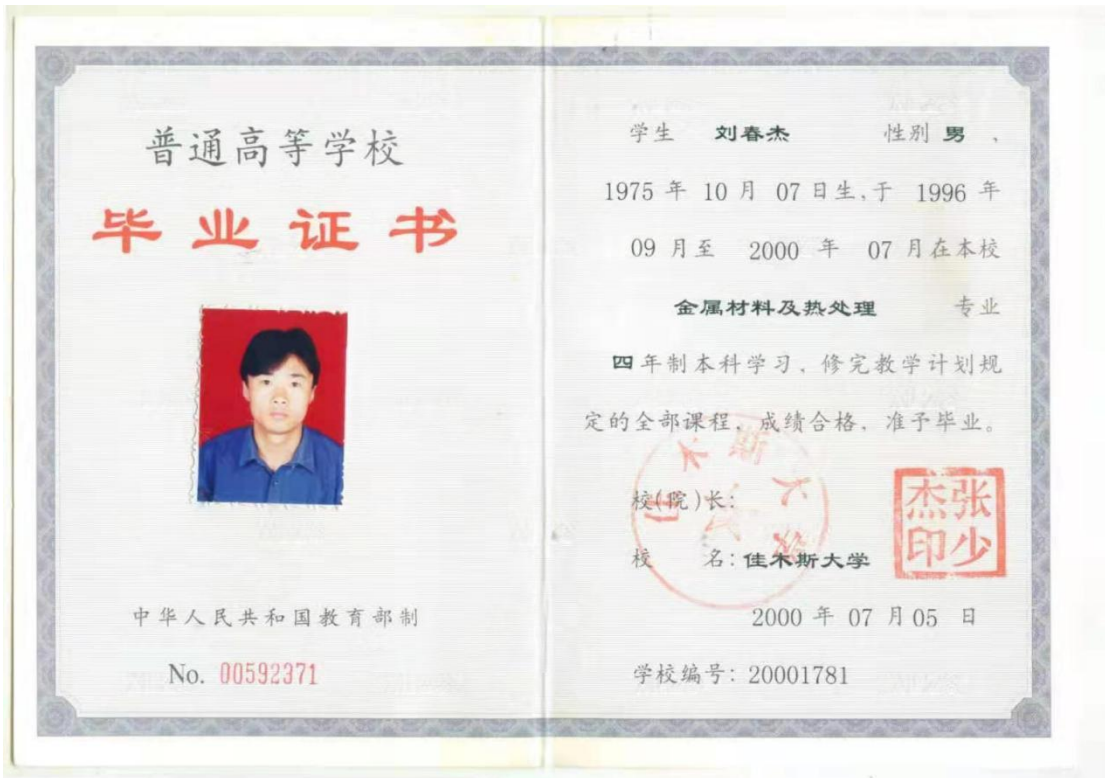 普通高等学校
毕业证书
中华人民共和国教育部制
No. 00592371
学生 刘春杰 性别 男、
1975 年 10 月 07 日生,于 1996 年
09 月至 2000 年 07 月在本校
金属材料及热处理 专业
四年制本科学习、修完教学计划规
定的全部课程、成绩合格、准予毕业。
校(院)长:
张少杰印
校 名: 佳木斯大学
佳木斯大学
2000 年 07 月 05 日
学校编号: 20001781